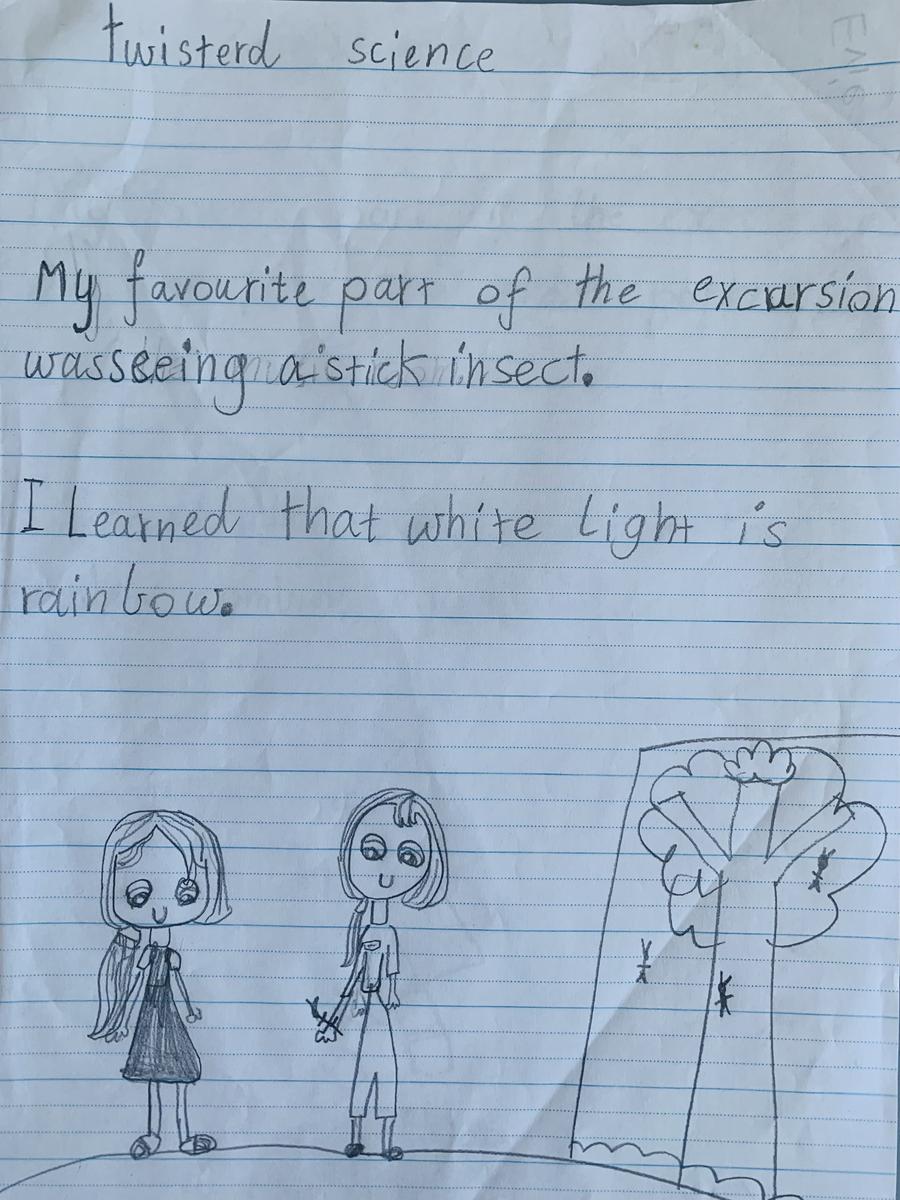 twisterd science
My favourite part of the excursion
wasseeing a stick insect.
I Learned that white light is
rainbow.